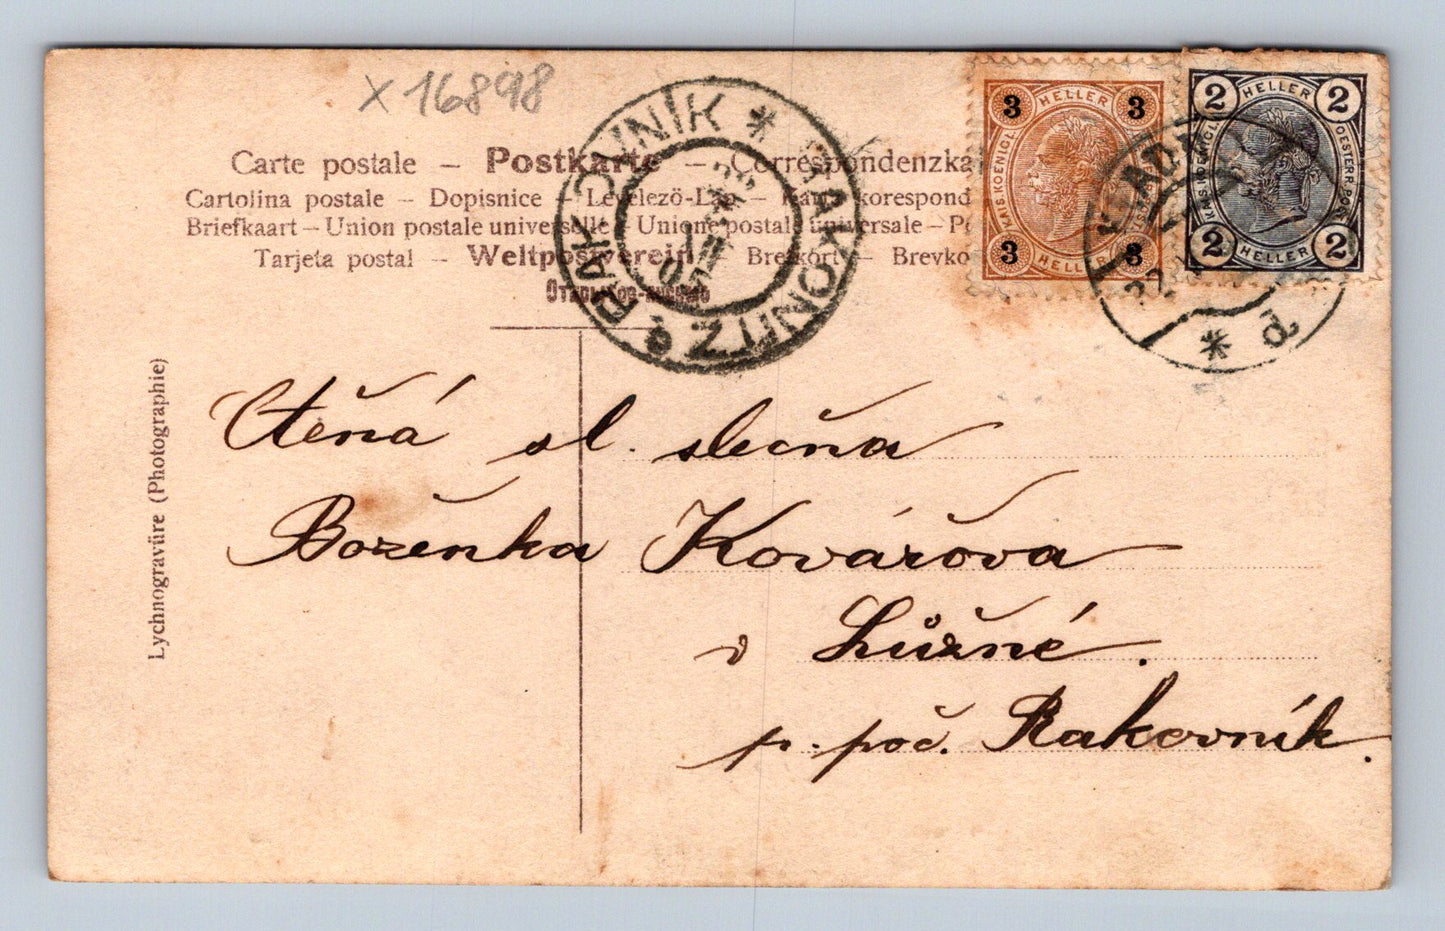 x 16898
Carte postale – Postkarte – Correspondenzka
Cartolina postale – Dopisnice – Levelezö-Lap – korespond
Briefkaart – Union postale universelle – Unione postale universale – P
Tarjeta postal – Weltpostverein – Brefkort – Brevko
Lychnogravüre (Photographie)
RAKOVNÍK * RAKONITZ
3 HELLER 3
KAIS. KOENIGL.
3 HELLER 3
2 HELLER 2
KAIS. KOENIGL. OESTERR. POST
2 HELLER 2
KLADN
Ctěná sl. slečna
Boženka Kovářova
v Lůžné.
p. poč. Rakovník.